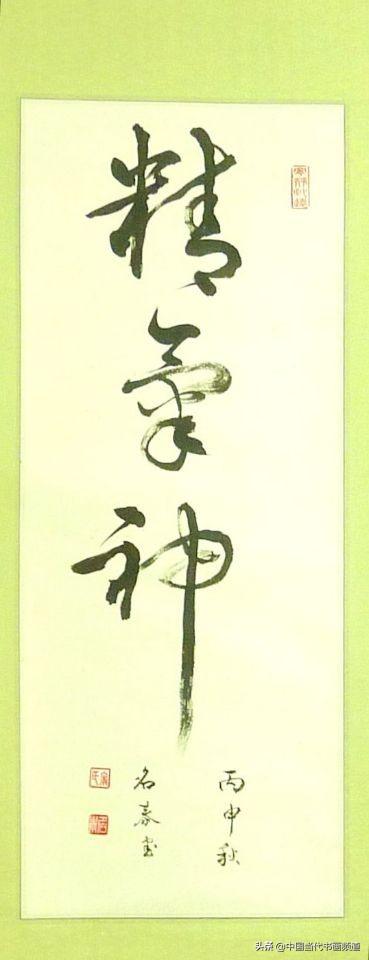 精氣神
丙申秋
名泰書
头条 @中国当代书画频道